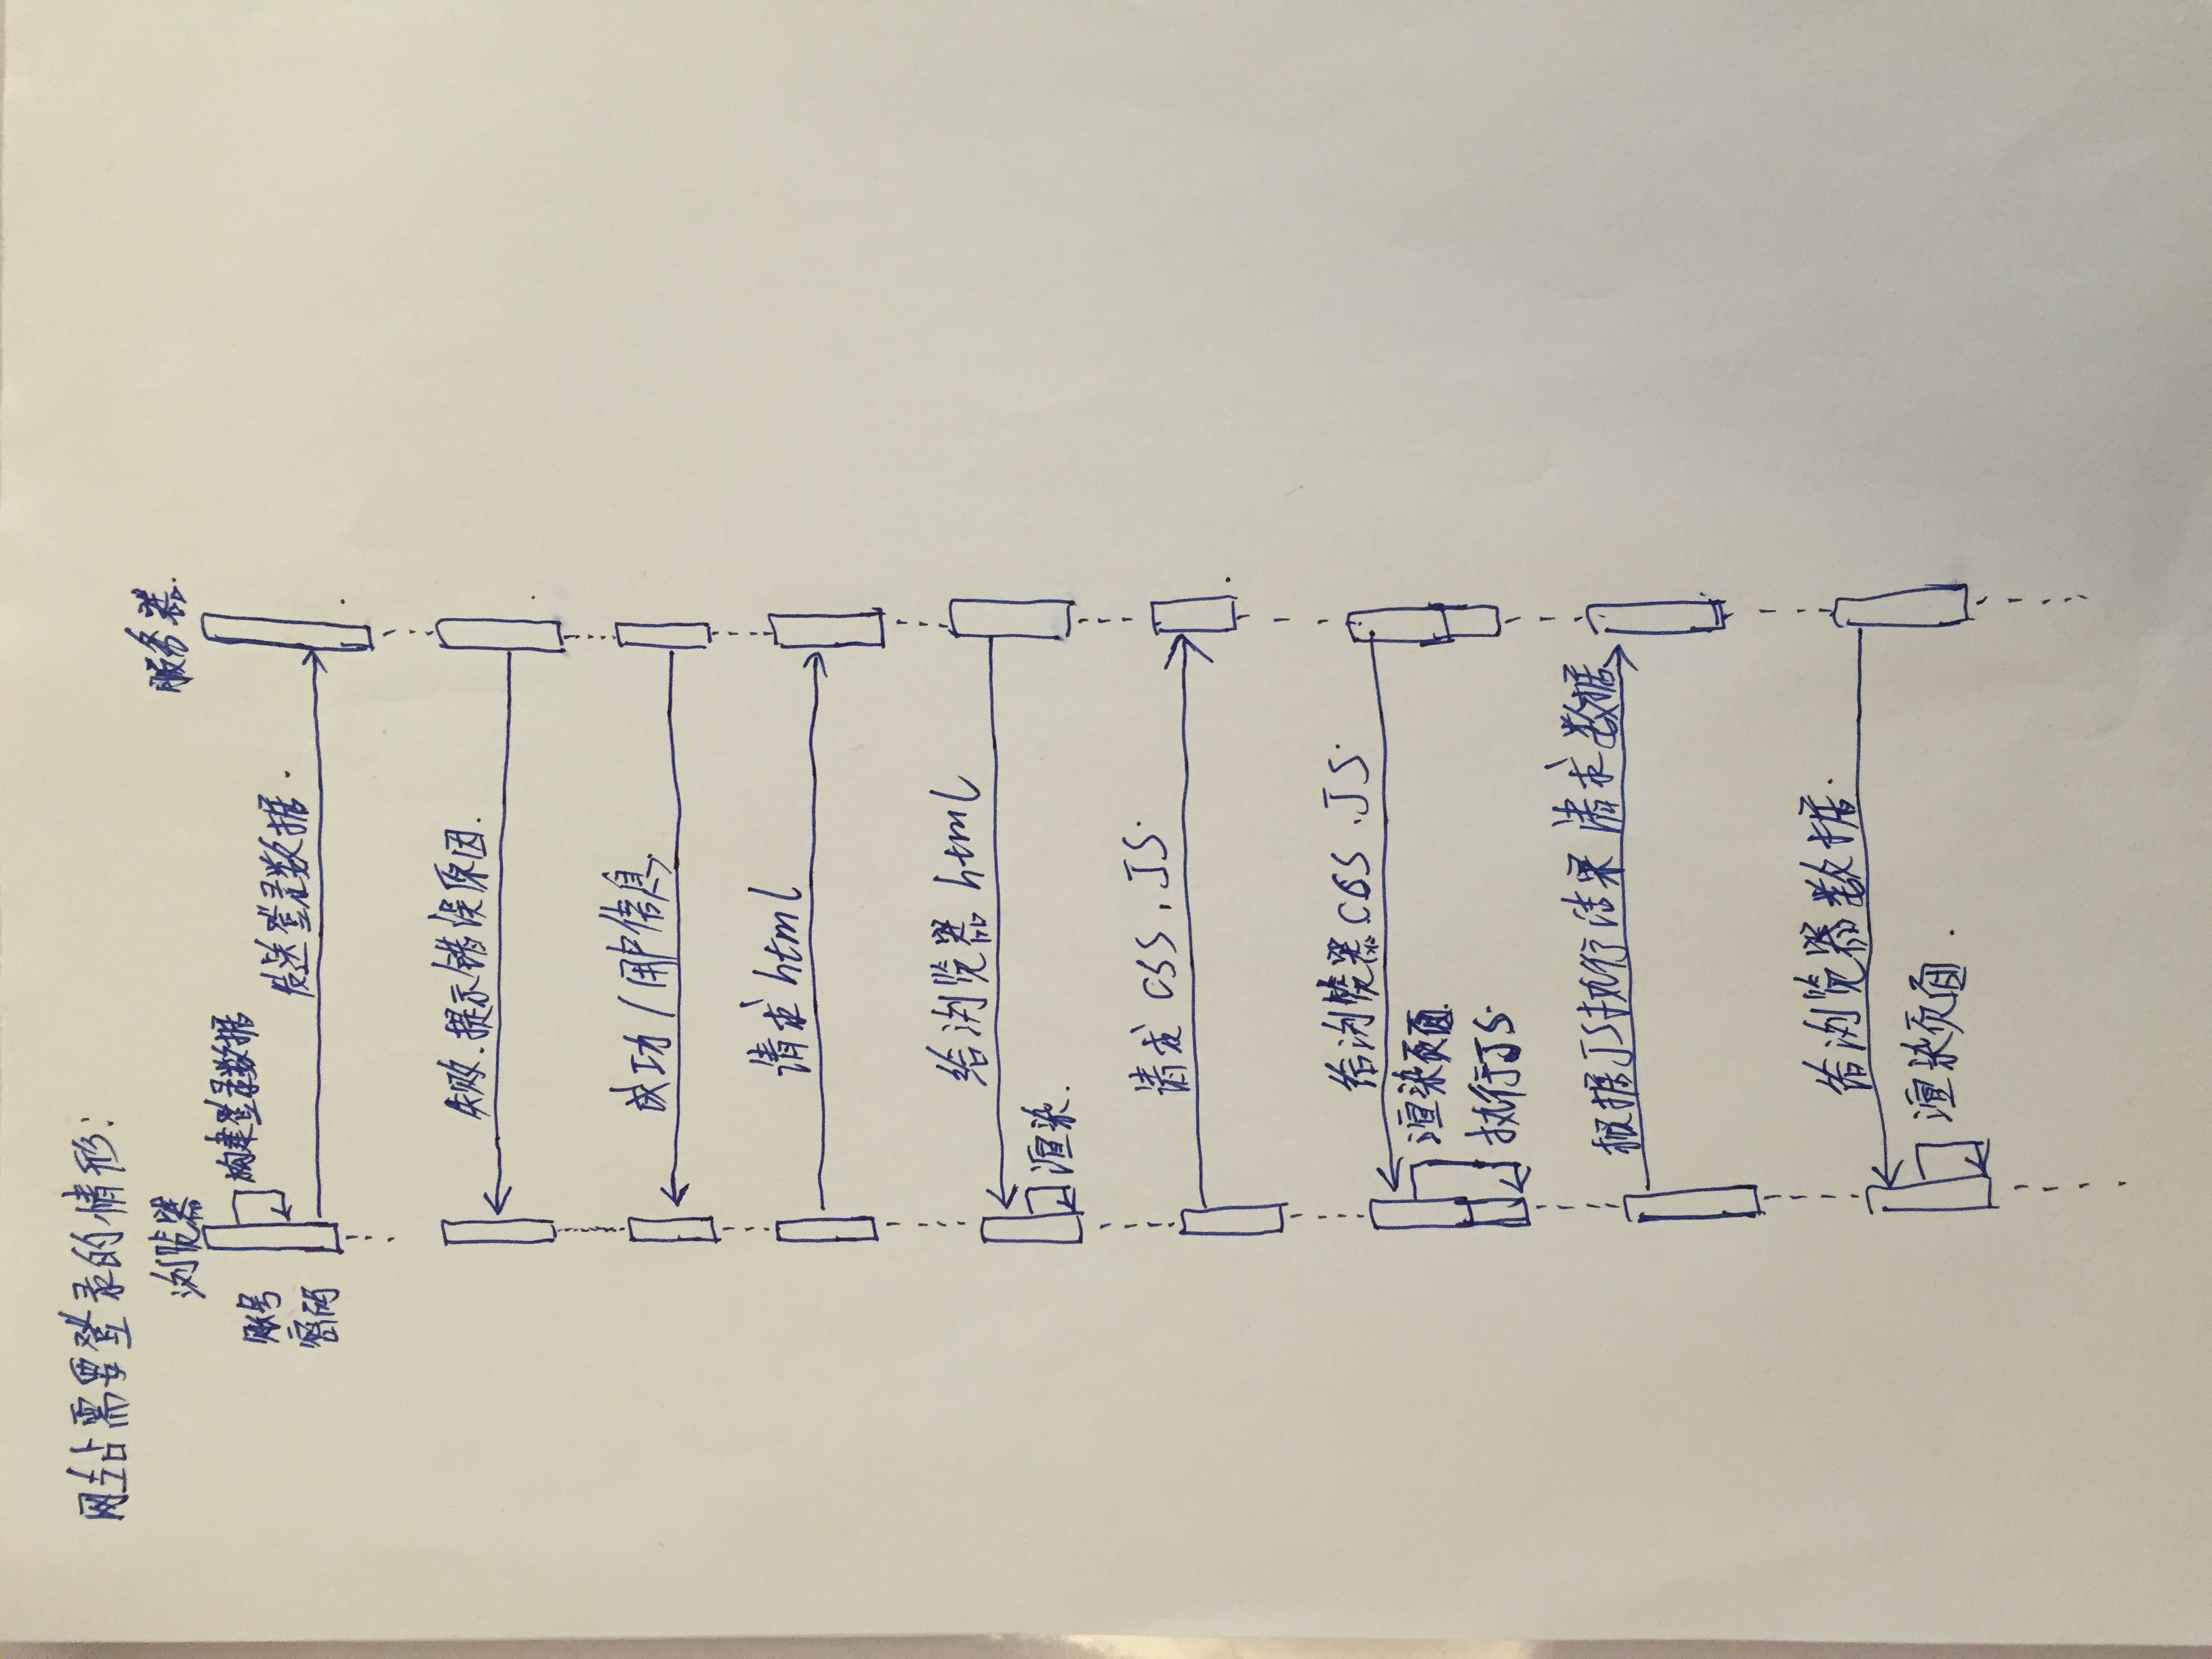 网站需要登录的情形:
浏览器
服务器.
构建登录数据
账号
密码
发送登录数据.
失败.提示错误原因.
成功/用户信息
请求html
给浏览器html
渲染.
请求CSS、JS.
给浏览器CSS、JS.
渲染页面.
执行JS.
根据JS执行结果 请求数据
给浏览器数据.
渲染页面.